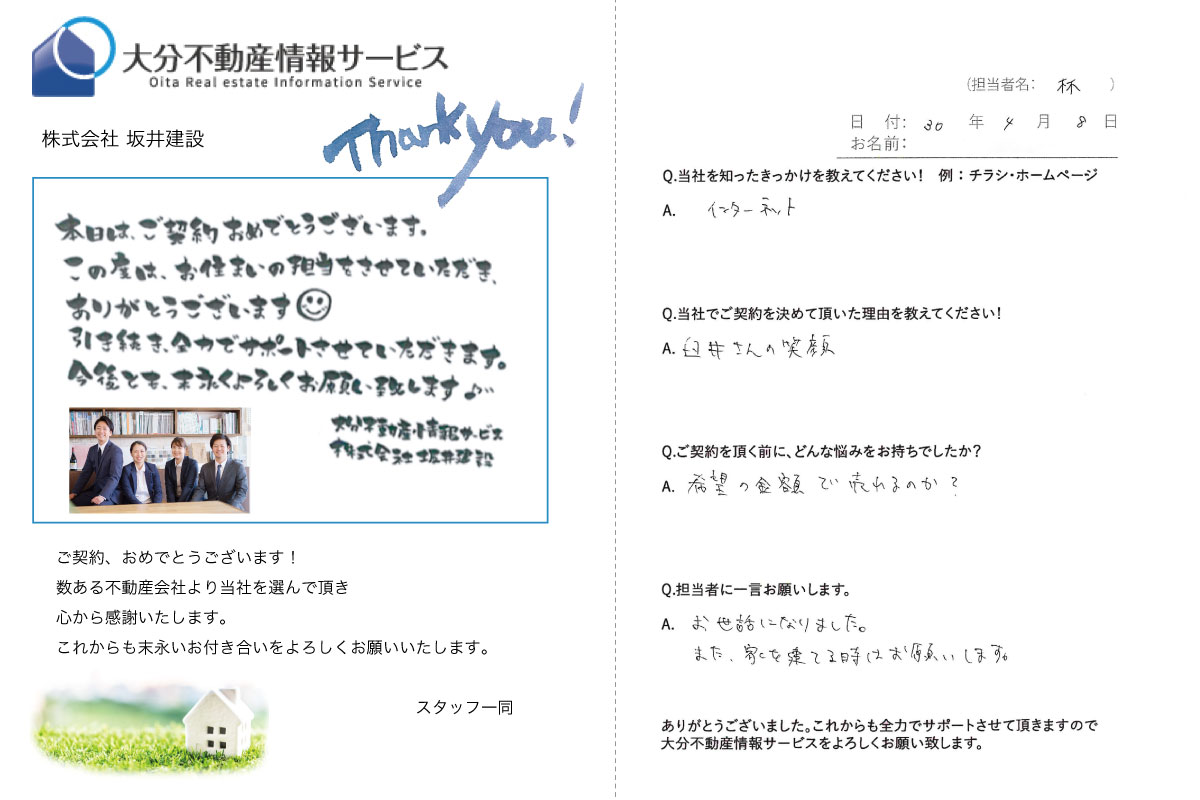 大分不動産情報サービス
Oita Real estate Information Service
株式会社 坂井建設
Thank you!
本日は、ご契約おめでとうございます。
この度は、お住まいの担当をさせていただき、
ありがとうございます
引き続き、全力でサポートさせていただきます。
今後とも、末永くよろしくお願い致します♪
大分不動産情報サービス
株式会社坂井建設
ご契約、おめでとうございます！
数ある不動産会社より当社を選んで頂き
心から感謝いたします。
これからも末永いお付き合いをよろしくお願いいたします。
スタッフ一同
(担当者名： 林 )
日 付： 30 年 4 月 8 日
お名前：
Q.当社を知ったきっかけを教えてください！ 例：チラシ・ホームページ
A. インターネット
Q.当社でご契約を決めて頂いた理由を教えてください！
A. 臼井さんの笑顔
Q.ご契約を頂く前に、どんな悩みをお持ちでしたか？
A. 希望の金額で売れるのか？
Q.担当者に一言お願いします。
A. お世話になりました。
また、家を建てる時はお願いします。
ありがとうございました。これからも全力でサポートさせて頂きますので
大分不動産情報サービスをよろしくお願い致します。